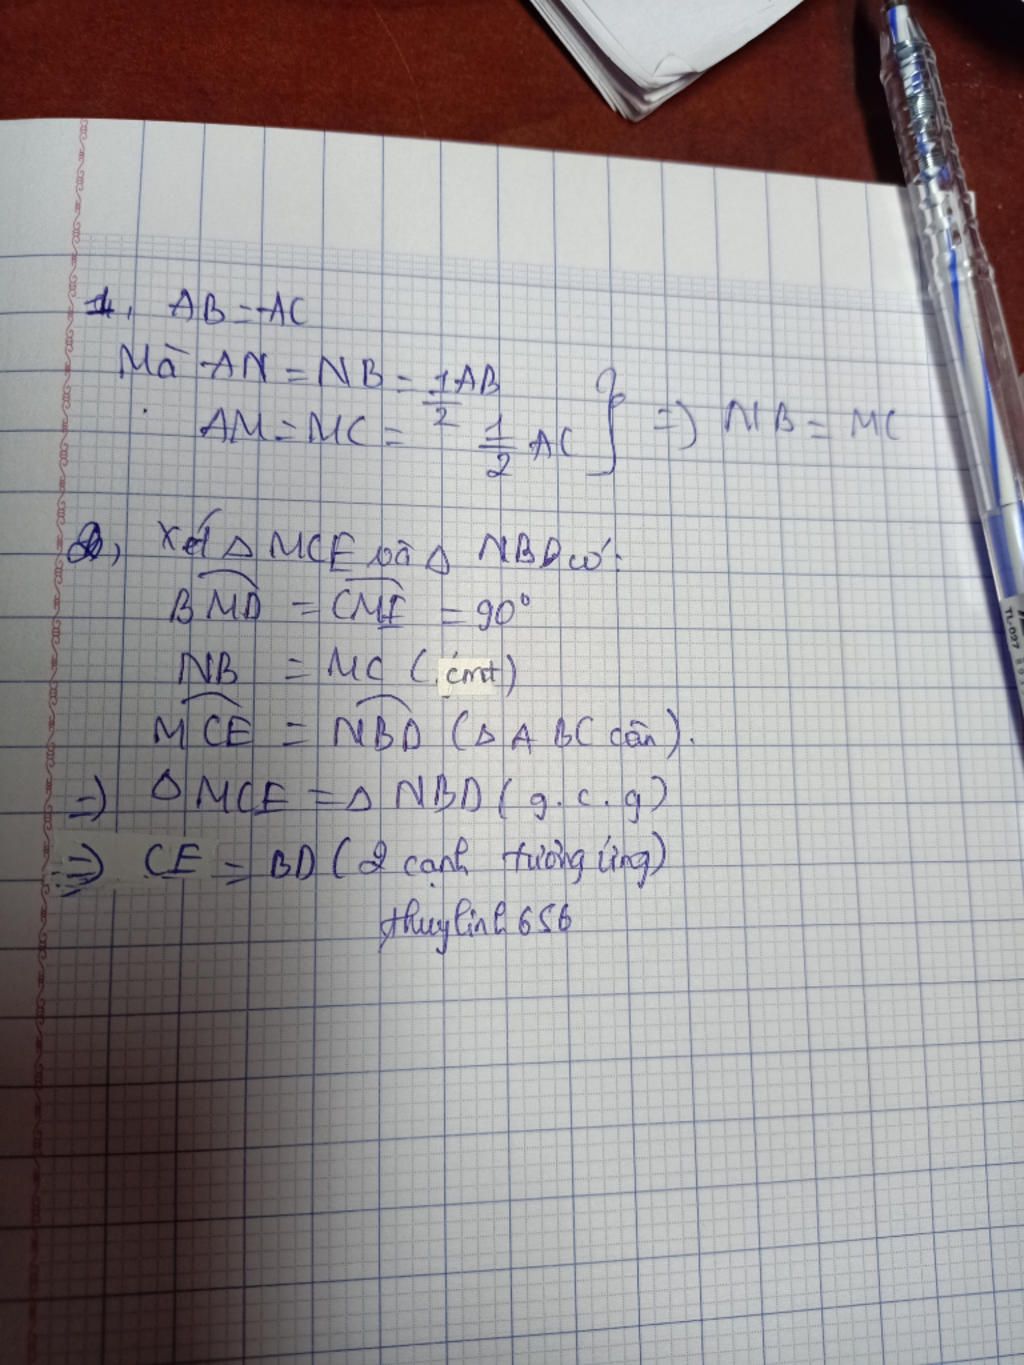 1, AB = AC
Mà AN = NB = 1/2 AB
AM = MC = 1/2 AC } => NB = MC
2, Xét △ MCE và △ NBD có:
BMD = CME = 90°
NB = MC (cmt)
MCE = NBD (△ ABC cân).
=> △ MCE = △ NBD (g.c.g)
=> CE = BD (2 cạnh tương ứng)
thuylinh656
TL-027